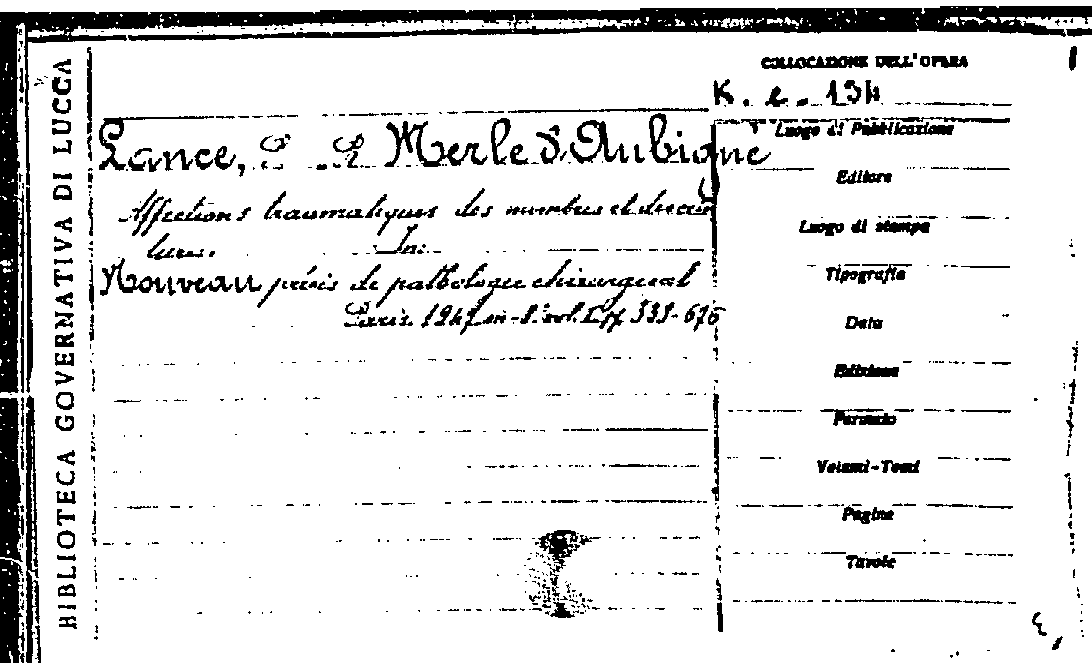 BIBLIOTECA GOVERNATIVA DI LUCCA
COLLOCAZIONE DELL'OPERA
K. e. 134
Lance, P. R Merle d'Aubigné
Affections traumatiques des membres et des cein
tures. In:
Nouveau précis de pathologie chirurgical
Paris. 1947 in-8. vol. I pp 535-676
Luogo di Pubblicazione
Editore
Luogo di stampa
Tipografia
Data
Edizione
Formato
Volumi-Tomi
Pagine
Tavole